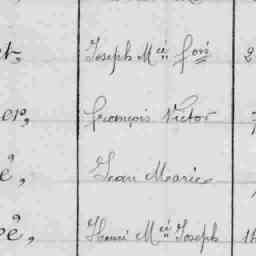 et, Joseph M.cé fois 2
er, François Victor
é, Jean Marie
é, Henri M.cé Joseph 16